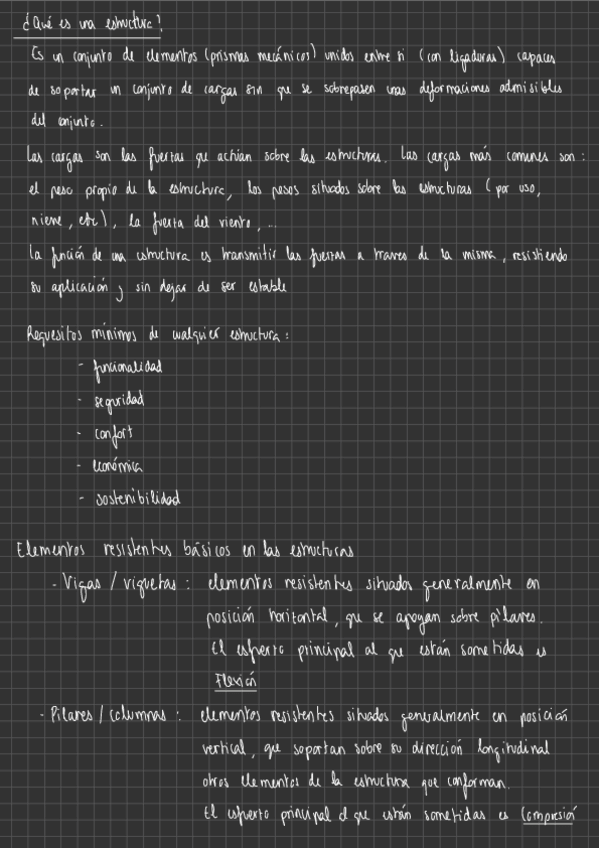 ¿Qué es una estructura?
Es un conjunto de elementos (prismas mecánicos) unidos entre si (con ligaduras) capaces
de soportar un conjunto de cargas sin que se sobrepasen unas deformaciones admisibles
del conjunto.
Las cargas son las fuerzas que actúan sobre las estructuras. Las cargas más comunes son:
el peso propio de la estructura, los pesos situados sobre las estructuras (por uso,
nieve, etc), la fuerza del viento, ...
La función de una estructura es transmitir las fuerzas a traves de la misma, resistiendo
su aplicación y sin dejar de ser estable
Requesitos mínimos de cualquier estructura:
- funcionalidad
- seguridad
- confort
- económica
- sostenibilidad
Elementos resistentes básicos en las estructuras
- Vigas / viguetas: elementos resistentes situados generalmente en
posición horizontal, que se apoyan sobre pilares.
El esfuerzo principal al que están sometidas es
Flexión
- Pilares / columnas: elementos resistentes situados generalmente en posición
vertical, que soportan sobre su dirección longitudinal
otros elementos de la estructura que conforman.
El esfuerzo principal al que están sometidas es Compresión